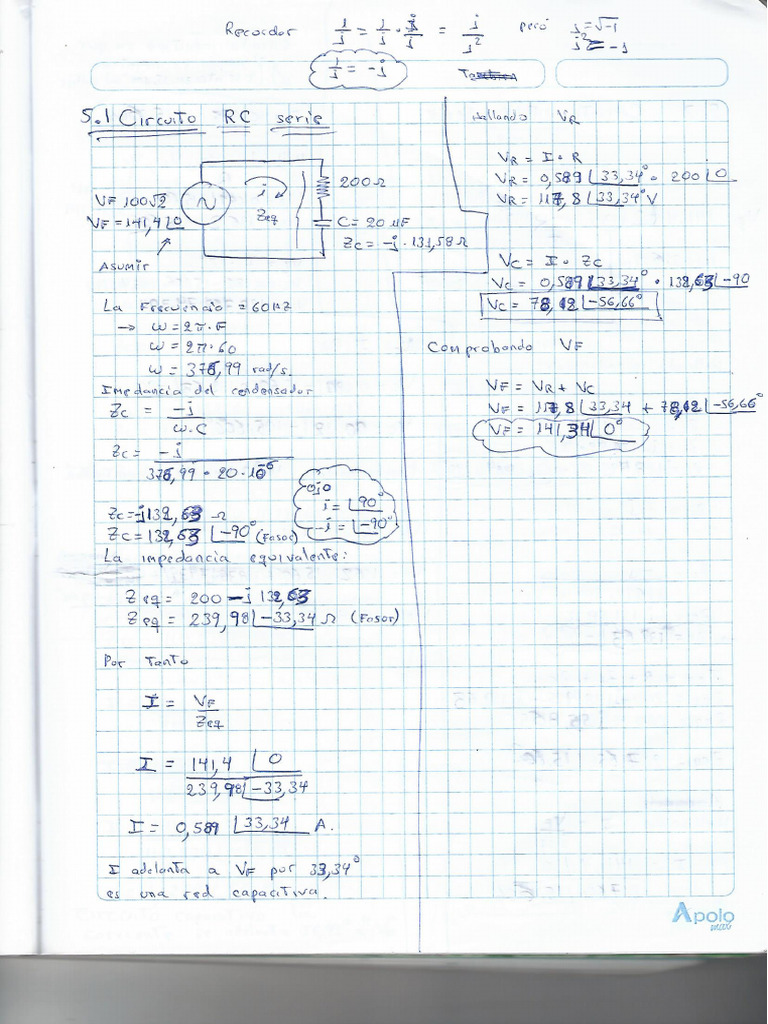 Recordar 1/j = 1/j · j/j = j/j² pero j=√-1
j²=-1
1/j = -j
5.1 Circuito RC serie
VF 100√2
VF = 141,4∠0
Asumir
i
Zeq
200Ω
C = 20 µF
Zc = -j · 131,58Ω
La Frecuencia = 60Hz
→ ω = 2π·F
ω = 2π·60
ω = 376,99 rad/s.
Impedancia del condensador
Zc = -j / ω.C
Zc = -j / 376,99 · 20·10⁻⁶
Zc = -j132,63 Ω
Zc = 132,63 ∠-90° (Fasor)
Ojo
j = ∠90°
-j = ∠-90°
La impedancia equivalente:
Zeq = 200 - j 132,63
Zeq = 239,98 ∠-33,34 Ω (Fasor)
Por Tanto
I = VF / Zeq
I = 141,4 ∠0 / 239,98 ∠-33,34
I = 0,589 ∠33,34 A.
I adelanta a VF por 33,34°
es una red capacitiva.
Hallando VR
VR = I · R
VR = 0,589 ∠33,34° · 200 ∠0
VR = 117,8 ∠33,34° V
Vc = I · Zc
Vc = 0,589 ∠33,34° · 132,63 ∠-90
Vc = 78,12 ∠-56,66°
Comprobando VF
VF = VR + Vc
VF = 117,8 ∠33,34 + 78,12 ∠-56,66°
VF = 141,34 ∠0°
Apolo